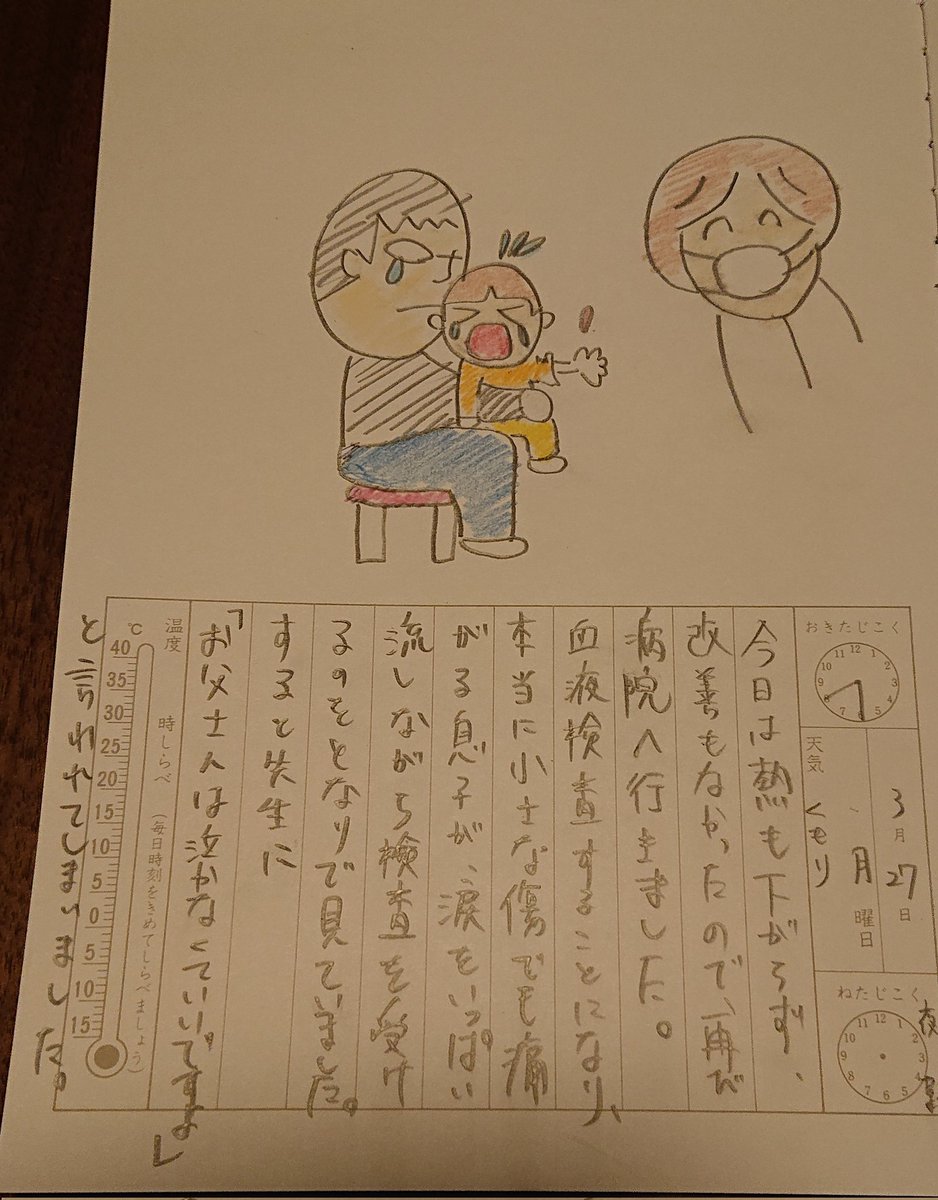 おきたじこく
12 1 2 3 4 5 6 7 8 9 10 11
3月27日
月曜日
天気
くもり
ねたじこく
12 1 2 3 4 5 6 7 8 9 10 11
夜
今日は熱も下がらず、
改善もなかったので、再び
病院へ行きました。
血液検査することになり、
本当に小さな傷でも痛
がる息子が、涙をいっぱい
流しながら検査を受け
るのをとなりで見ていました。
すると先生に
「お父さんは泣かなくていいですよ」
と言われてしまいました。
温度
時しらべ (毎日時刻をきめてしらべましょう)
℃
40
35
30
25
20
15
10
5
0
5
10
15